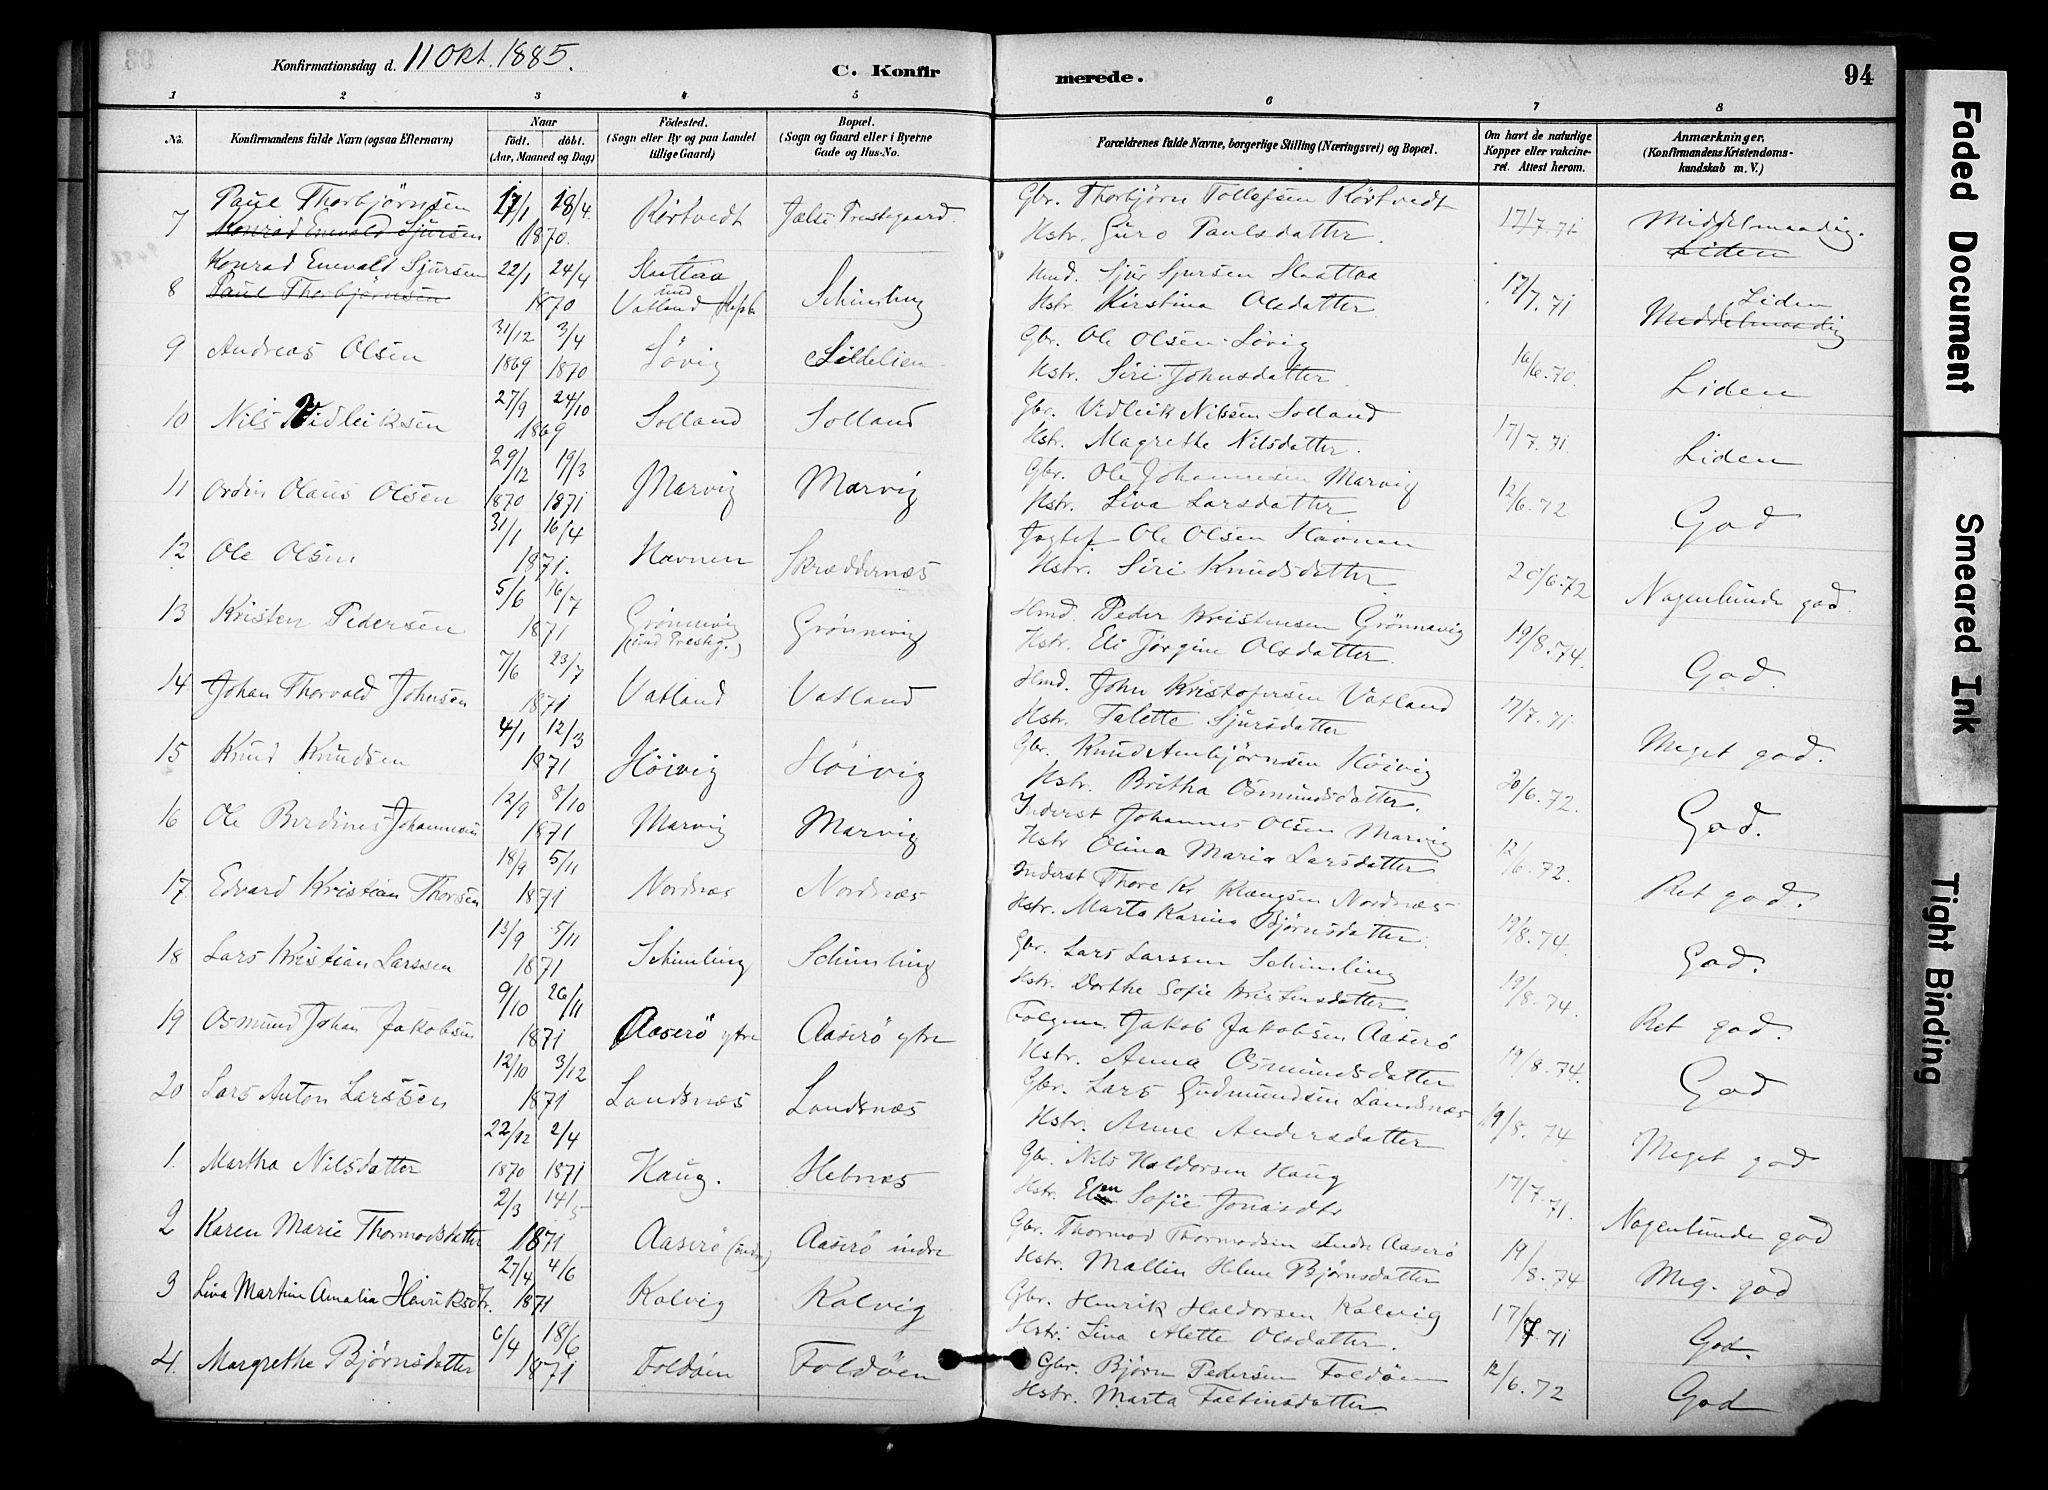 Konfirmationsdag d. 11 Okt. 1885.
C. Konfirmerede.
94
1 2 3 4 5 6 7 8
No.
Konfirmandens fulde Navn (ogsaa Efternavn)
Naar
födt. döbt.
(Aar, Maaned og Dag)
Födested.
(Sogn eller By og paa Landet
tillige Gaard)
Bopæl.
(Sogn og Gaard eller i Byerne
Gade og Hus-No.
Forældrenes fulde Navne, borgerlige Stilling (Næringsvei) og Bopæl.
Om havt de naturlige
Kopper eller vakcine-
ret. Attest herom.
Anmærkninger.
(Konfirmandens Kristendoms-
kundskab m. V.)
7 Paul Thorbjørnsen 17/1 18/4 1870. Rörtvedt Jælse Prestegaard. Gbr. Thorbjørn Tollefsen Rörtvedt 17/7.71 Middelmaadig.
Konrad Enevald Sjursen Hstr. Guro Paulsdatter. Liden
8 Konrad Enevald Sjursen 22/1 24/4 1870 Slattaa und Vatland Schimling Hmd. Sjur Sjursen Slaattaa 17/7.71 Liden
Paul Thorbjørnsen Hstr. Kirstina Olsdatter Middelmaadig
9 Andreas Olsen 31/12 1869 3/4 1870 Løvig Lildelien Gbr. Ole Olsen Løvig 16/6.70. Liden
Hstr. Siri Johnsdatter
10 Nils Vidleiksen 27/9 24/10 1869 Solland Solland Gbr. Vidleik Nilsen Solland 17/7.71. Liden
Hstr. Magrethe Nilsdatter.
11 Ordin Olaus Olsen 29/12 1870 19/3 1871 Marvig Marvig Gbr. Ole Johannesen Marvig 12/6.72 God
Hstr. Liva Larsdatter
12 Ole Olsen 31/1 16/4 1871. Havnen Skræddernæs Jagtef Ole Olsen Havnen 20/6.72 Nogenlunde god.
Hstr. Siri Knudsdatter
13 Kristen Pedersen 5/6 16/7 1871 Grönnevig (und Prestg.) Grønnevig Hmd. Peder Kristensen Grönnevig 19/8.74. God.
Hstr. Eli Jørgine Olsdatter.
14 Johan Thorvald Johnsen 7/6 23/7 1871 Vatland Vatland Hmd. John Kristofersen Vatland 17/7.71 Meget god.
Hstr. Talette Sjursdatter
15 Knud Knudsen 4/1 12/3 1871 Høivig Høivig Gbr. Knud Ambjørnsen Höivig 20/6.72. God.
Hstr. Britha Osmundsdatter.
16 Ole Berdines Johannesen 12/9 8/10 1871 Marvig Marvig Inderst Johannes Olsen Marvig 12/6.72. Ret god.
Hstr Olina Maria Larsdatter
17. Edvard Kristian Thorsen 18/9 5/11 1871 Nordnæs Nordnæs Inderst Thore Kr Klaugsen Nordnæs 19/8.74 God.
Hstr. Marta Karina Bjørnsdatter.
18 Lars Kristian Larssen 13/9 5/11 1871 Schimling Schimling Gbr. Lars Larssen Schimling 19/8.74. Ret god.
Hstr. Dorthe Sofie Kristensdatter
19 Osmund Johan Jakobsen 9/10 26/11 1871 Aaserö ytre Aaserö ytre Folgem. Jakob Jakobsen Aaserö 19/8.74. God
Hstr. Anna Osmundsdatter
20 Lars Anton Larssen 12/10 3/12 1871 Landsnæs Landsnæs Gbr. Lars Gudmundsen Landsnæs 19/8.74 Meget god
Hstr. Anne Andersdatter
1. Martha Nilsdatter 22/12 1870 2/4 1871 Haug. Hebnæs Gbr. Nils Haldorsen Haug 17/7.71. Nogenlunde god
Hstr. Elen Sofie Jonasdtr
2 Karen Marie Thormodsdatter 2/3 14/5 1871 Aaserö (indre) Aaserö indre Gbr. Thormod Thormodsen Indre Aaserö 19/8.74 Meg. god
Hstr. Mallin Helene Bjørnsdatter
3 Liva Martine Amalia Henriksdtr. 27/4 4/6 1871 Kalvig Kalvig Gbr. Henrik Haldorsen Kalvig 17/7.71 God.
Hstr. Lina Alette Olsdatter.
4. Margrethe Bjørnsdatter 6/4 18/6 1871 Foldöen Foldöen Gbr. Bjørn Pedersen Foldöen 12/6.72 God
Hstr. Marta Falkinsdatter
Faded Document
Smeared Ink
Tight Binding